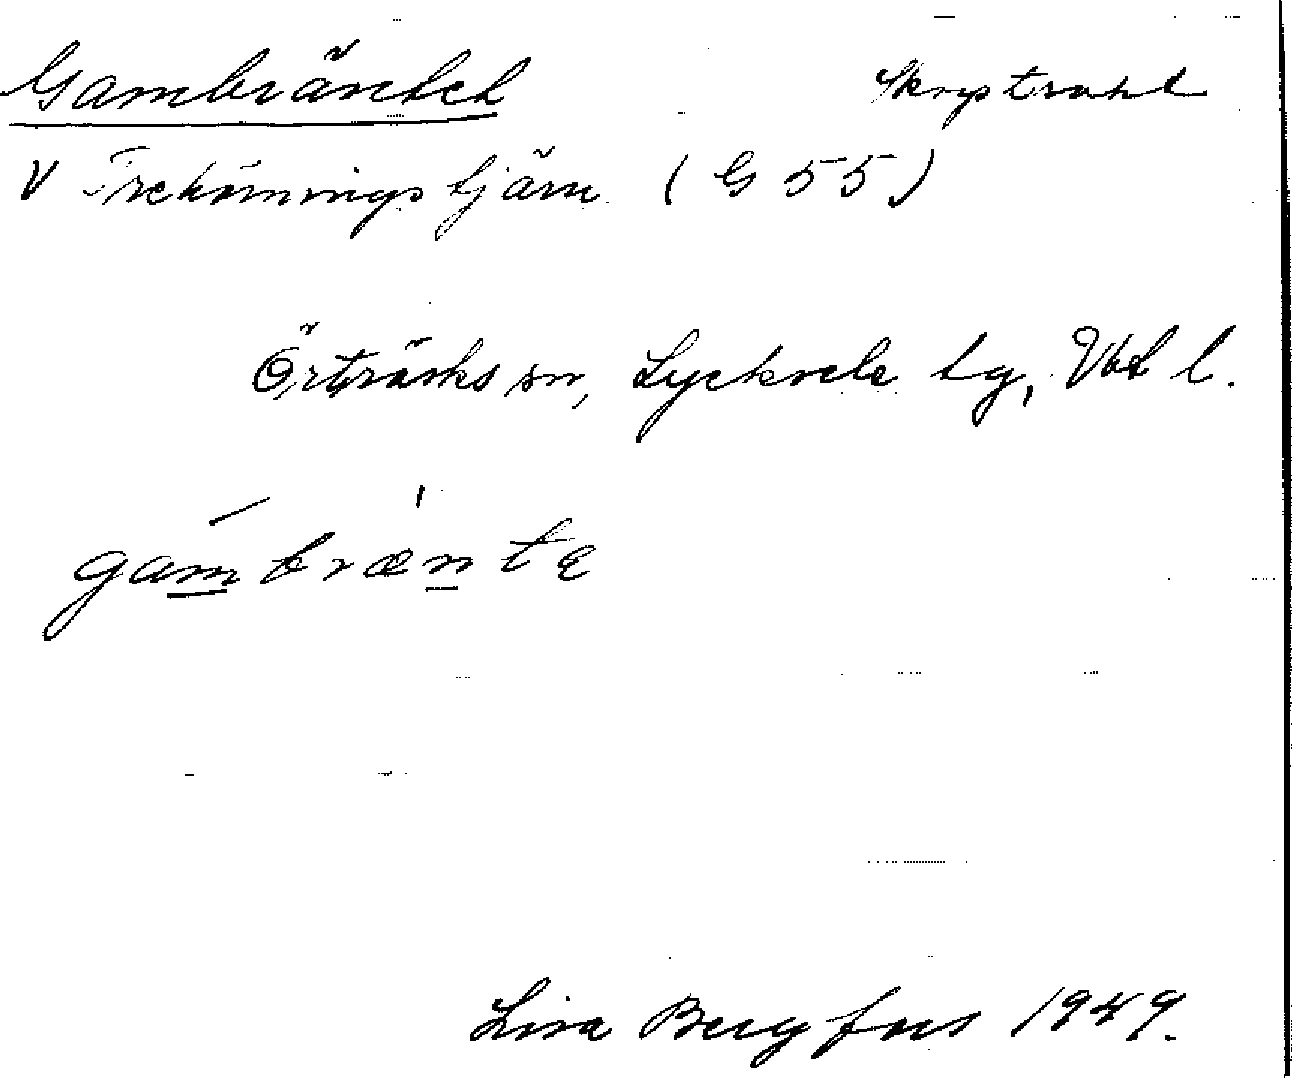 Gambräntet Skogstrakt
V Trekänningstjärn (G 55)
Örträsks sn, Lycksele tg, Vbt l.
gambrænte
Lisa Bergfors 1949.